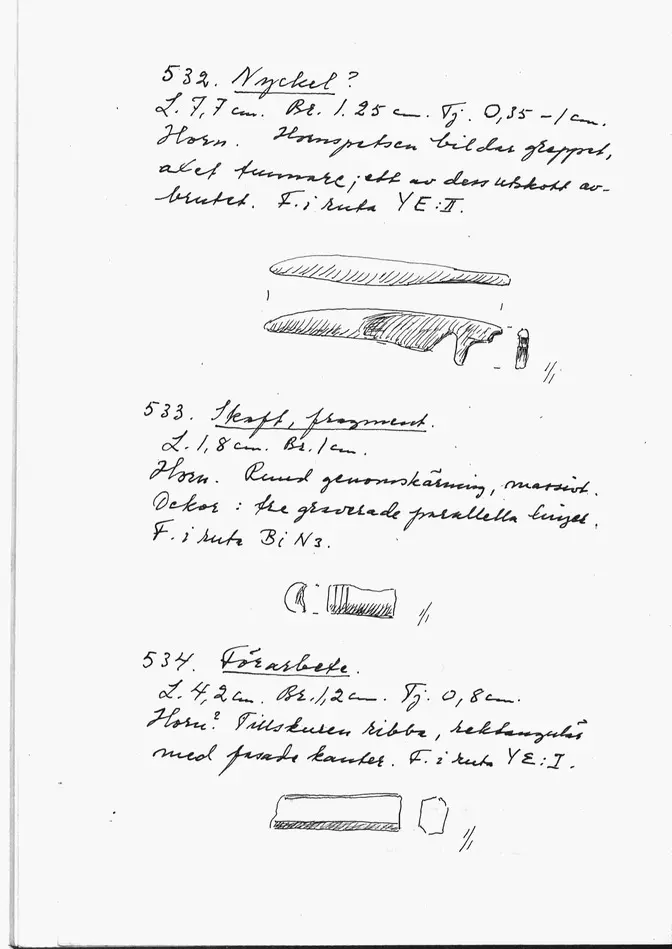 532. Nyckel?
L. 7,7 cm. Br. 1.25 cm. Tj. 0,35 – 1 cm.
Horn. Hornspetsen bildar greppet,
axet tunnare; ett av dess utskott av-
brutet. F. i ruta YE:II.
1/1
533. Skaft, fragment.
L. 1,8 cm. Br. 1 cm.
Horn. Rund genomskärning, massivt.
Dekor: tre graverade parallella linjer.
F. i ruta BiN3.
1/1
534. Förarbete.
L. 4,2 cm. Br. 1,2 cm. Tj. 0,8 cm.
Horn? Tillskuren ribba, rektangulär
med fasade kanter. F. i ruta YE:I.
1/1